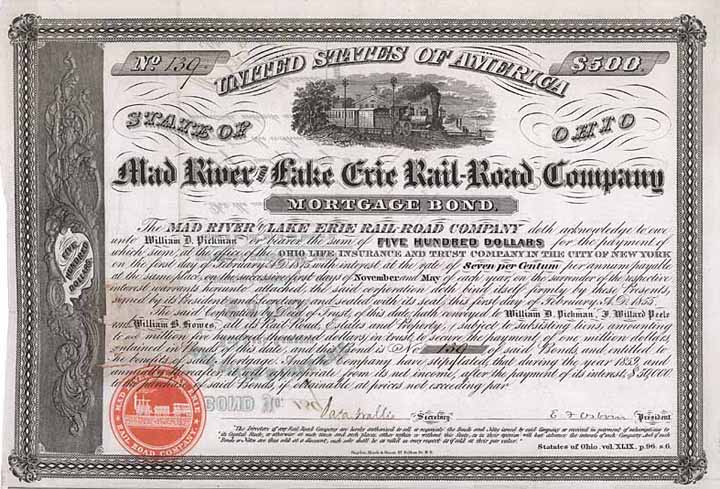 No. 139
UNITED STATES OF AMERICA
$500.
STATE OF OHIO
Mad River and Lake Erie Rail-Road Company
MORTGAGE BOND.
The MAD RIVER & LAKE ERIE RAIL ROAD COMPANY doth acknowledge to owe
unto William D. Pickman or bearer the sum of FIVE HUNDRED DOLLARS for the payment of
which sum, at the office of the OHIO LIFE INSURANCE AND TRUST COMPANY IN THE CITY OF NEW YORK
on the first day of February A.D. 1875 with interest at the rate of Seven per Centum per annum payable
at the same place on the successive first days of November and May of each year, on the surrender of the respective
interest warrants hereunto attached, the said Corporation doth bind itself firmly by these Presents,
signed by its President and Secretary and sealed with its seal, this first day of February A.D. 1855.
The said Corporation by Deed of Trust, of this date, hath conveyed to William D. Pickman, J. Willard Peele
and William B. Howes, all its Rail Road, Estates and Property, subject to subsisting liens, amounting
to million five hundred thousand dollars, in trust to secure the payment of one million dollars,
in bonds of this date, and this Bond is No. 139 of said Bonds, and entitled to
the benefits of said Mortgage. And the Company have stipulated that during the year 1859, and
annually thereafter, it will appropriate from its net income, after the payment of interest, $50,000
to the purchase of said Bonds, if obtainable at prices not exceeding par.
FIVE HUNDRED DOLLARS
MAD RIVER & LAKE ERIE RAIL ROAD COMPANY
Secretary
President
The Directors of any Rail Road Company are hereby authorized to sell or negotiate the Bonds and Notes issued by said Company or received in payment of subscriptions to
its Capital Stock, or otherwise at such times and such places either within or without this State, as in their opinion will best advance the interests of such Company. And if such
Bonds or Notes are thus sold at a discount, such sale shall be as valid in every respect as if sold at their par value.
Statutes of Ohio, vol. XLIX. p. 96. s. 6.